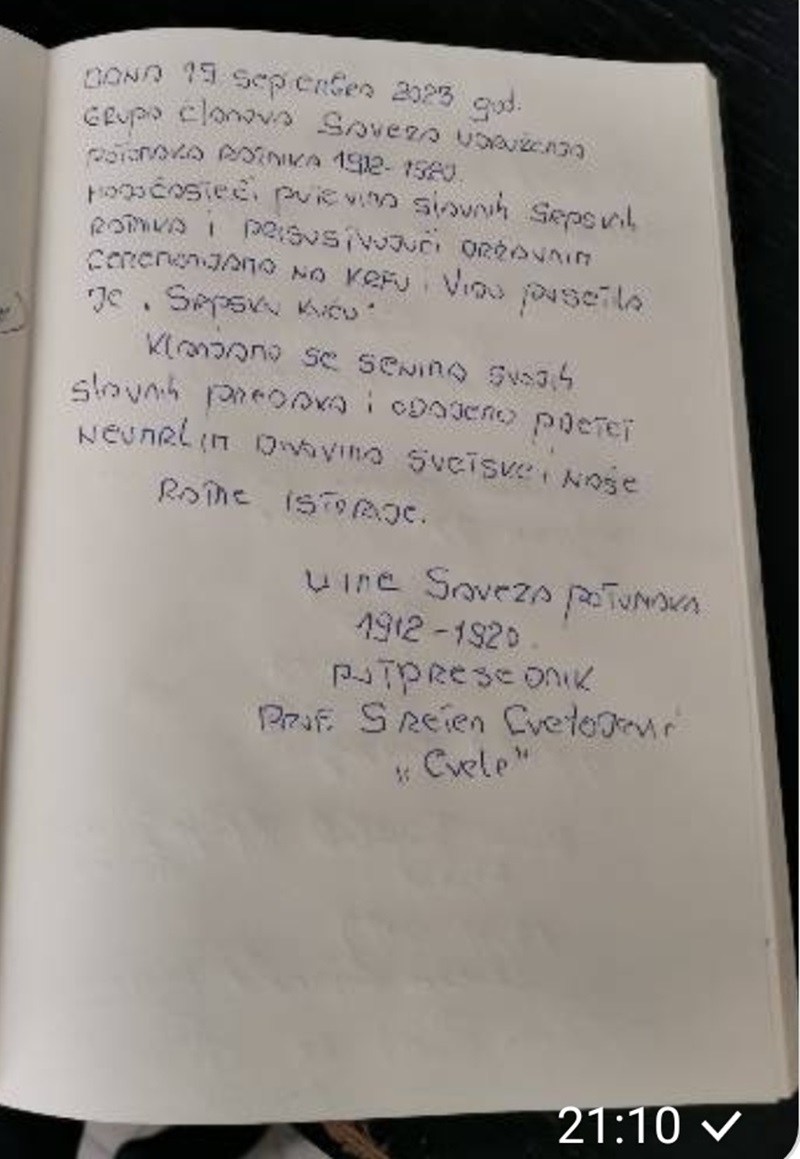 DANA 19 septembra 2023 god.
GRUPA članova Saveza UDRUŽENJA
POTOMAKA RATNIKA 1912-1920.
HODOČASTEĆI putevima slavnih SRPSKIH
RATNIKA i PRISUSTVUJUĆI DRŽAVNIM
CEREMONIJAMA NA KRFU i VIDU posetila
JE „SRPSKU KUĆU"
Klanjamo se SENIMA svojih
slavnih PREDAKA i ODAJEMO POČAST
NEUMRLIM DIVOVIMA SVETSKE i NAŠE
RATNE ISTORIJE.
U IME SAVEZA POTOMAKA
1912-1920.
POTPRESEDNIK
PROF. Sreten Cvetojević
„Cvele"
21:10